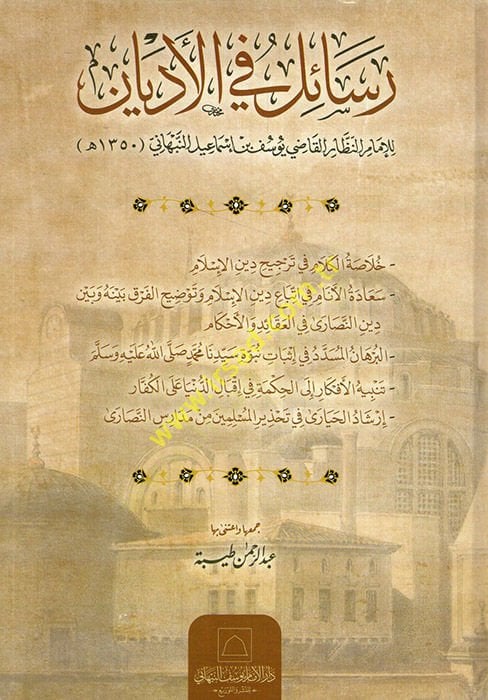 رسائل في الأديان
للإمام النظار القاضي يوسف بن إسماعيل النبهاني (١٣٥٠ هـ)
- خُلَاصَةُ الكَلَامِ فِي تَرْجِيحِ دِينِ الإِسْلَامِ
- سَعَادَةُ الأَنَامِ فِي اتِّبَاعِ دِينِ الإِسْلَامِ وَتَوْضِيحِ الفَرْقِ بَيْنَهُ وَبَيْنَ
دِينِ النَّصَارَى فِي العَقَائِدِ وَالأَحْكَامِ
- البُرْهَانُ المُسَدَّدُ فِي إِثْبَاتِ نُبُوَّةِ سَيِّدِنَا مُحَمَّدٍ صَلَّى اللهُ عَلَيْهِ وَسَلَّمَ
- تَنْبِيهُ الأَفْكَارِ إِلَى الحِكْمَةِ فِي إِقْبَالِ الدُّنْيَا عَلَى الكُفَّارِ
- إِرْشَادُ الحَيَارَى فِي تَحْذِيرِ المُسْلِمِينَ مِنْ مَدَارِسِ النَّصَارَى
جمعها واعتنى بها
عبد الرحمن طيبة
دار الإمام يوسف النبهاني
للنشر والتوزيع